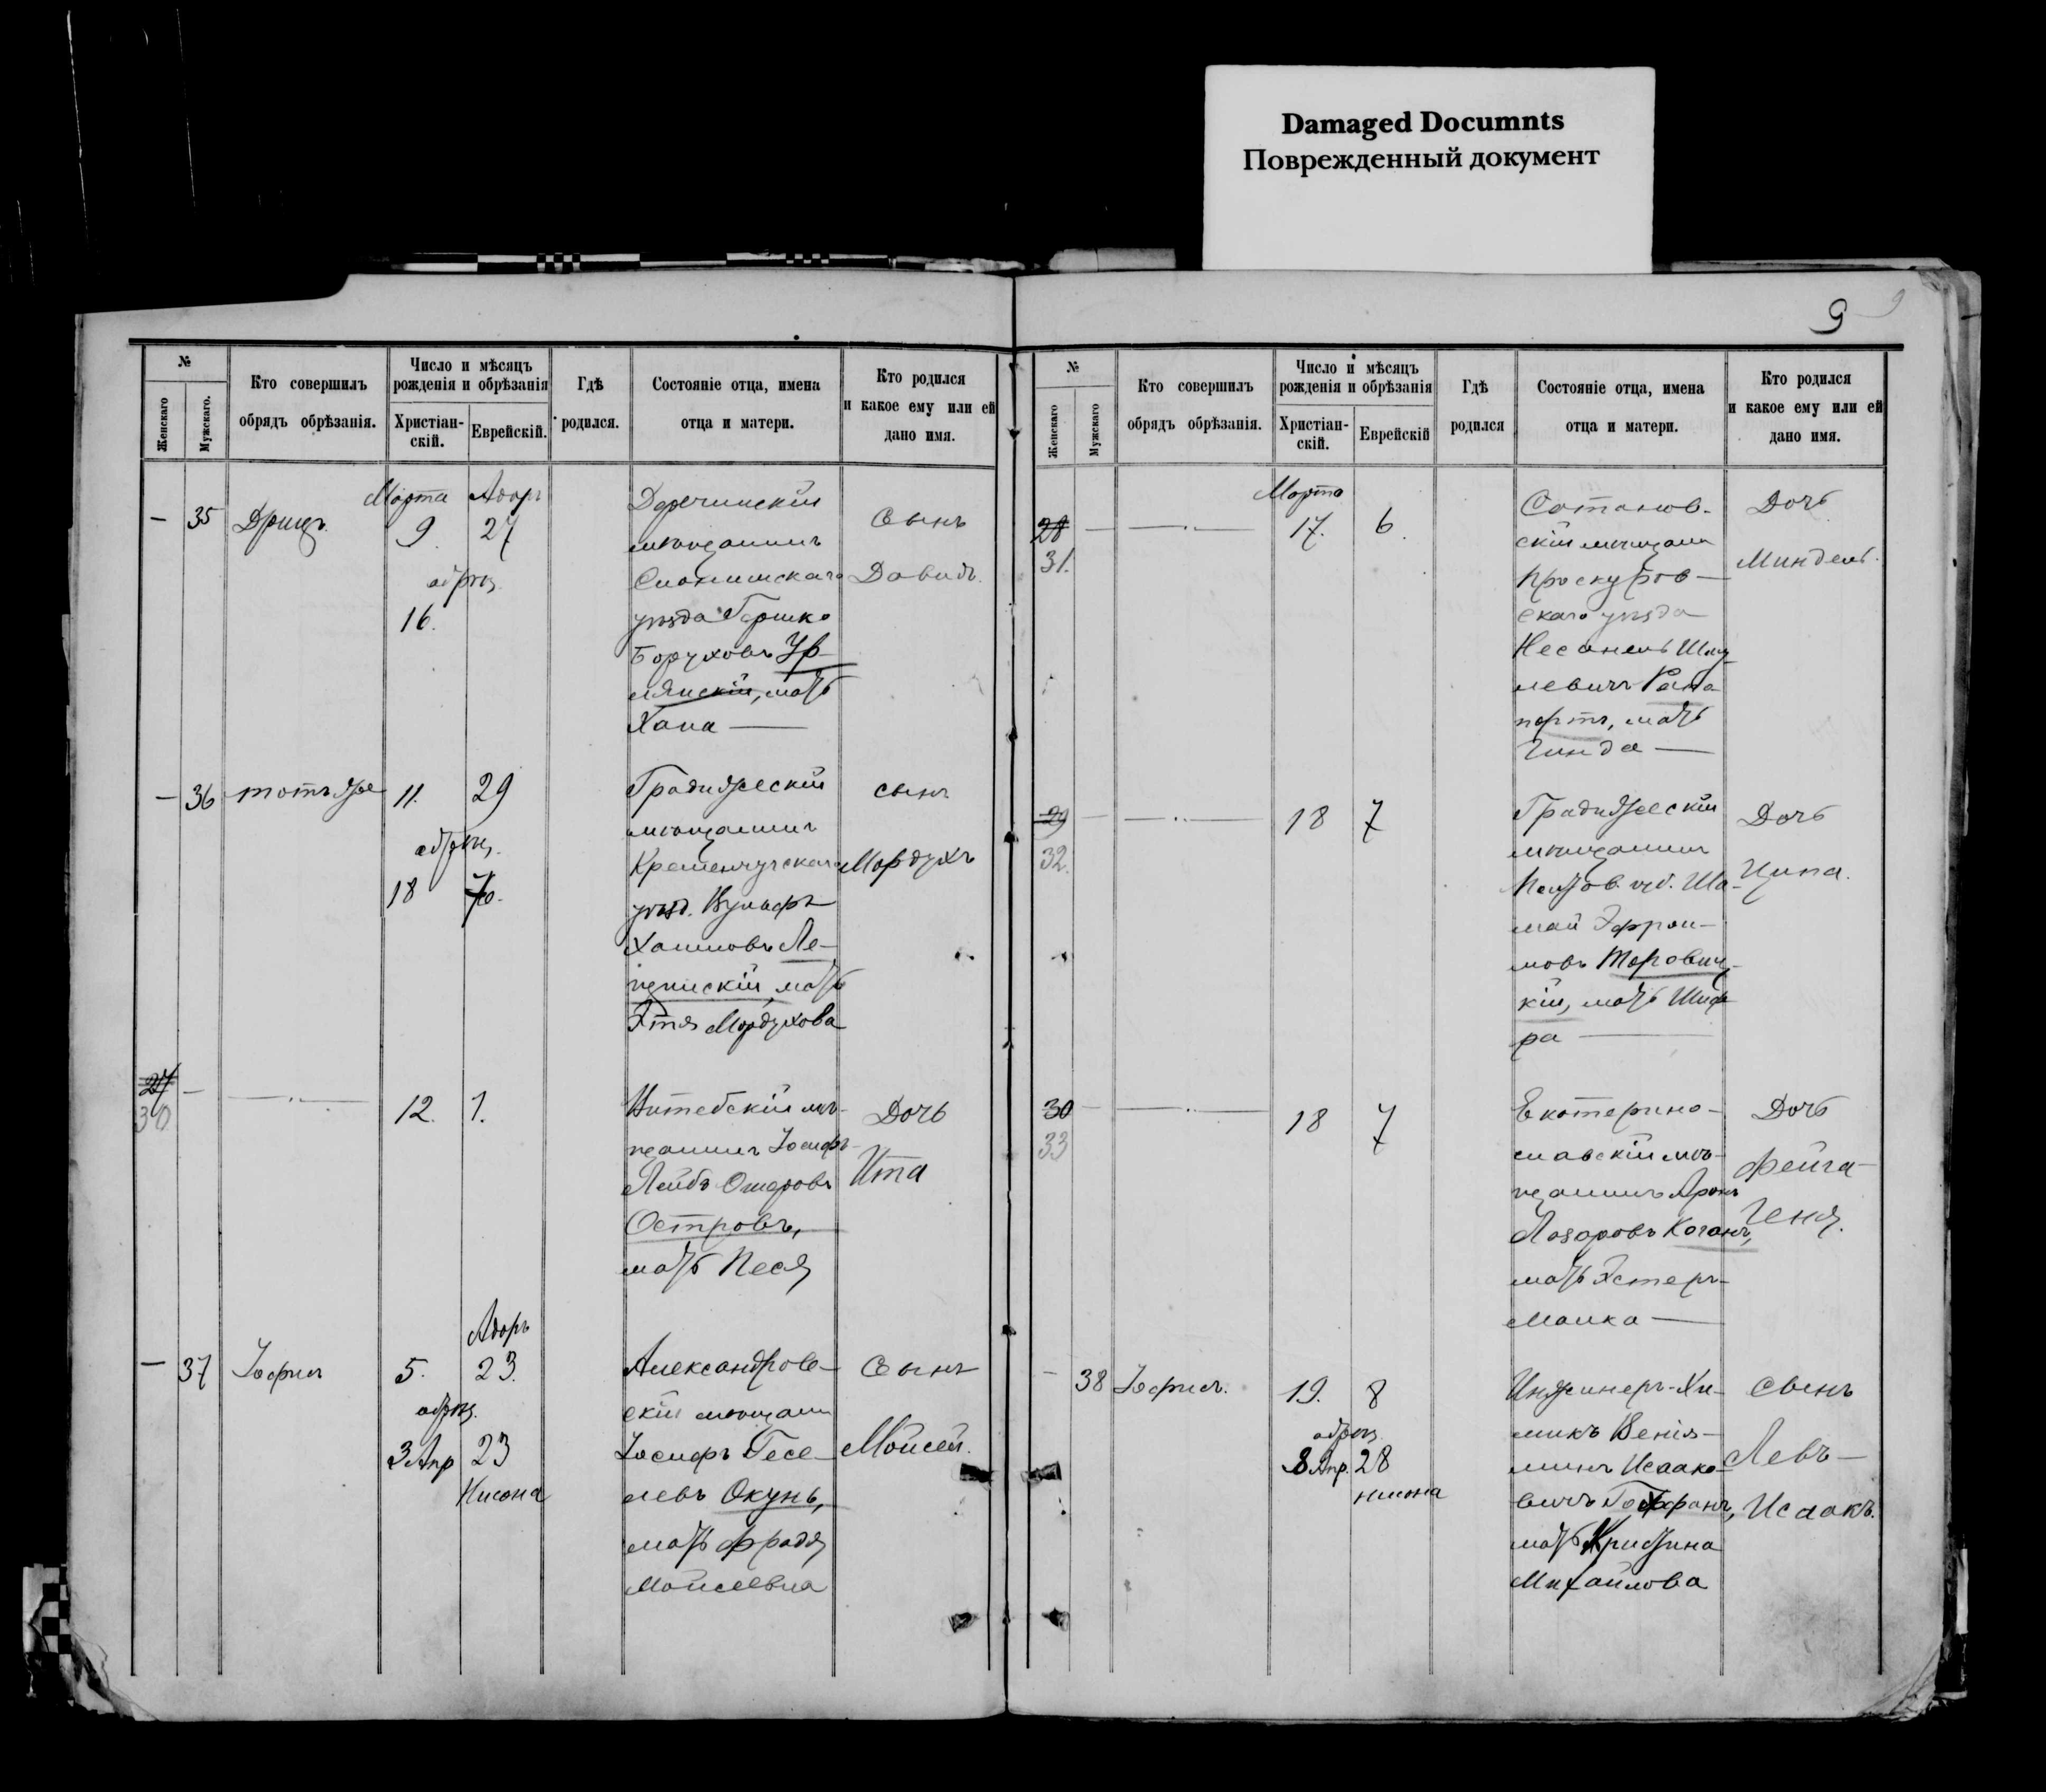 Damaged Documnts
Поврежденный документ
9
№
Женскаго
Мужскаго.
Кто совершилъ
обрядъ обрѣзанія.
Число и мѣсяцъ
рожденія и обрѣзанія
Христіан-
скій.
Еврейскій.
Гдѣ
родился.
Состояніе отца, имена
отца и матери.
Кто родился
и какое ему или ей
дано имя.
— 35
Марта Адаръ
9. 27
обрѣз.
16.
Деречинскій
мѣщанинъ
Слонимскаго
уѣзда Гершко
Боруховъ
мать
Хана —
Сынъ
Давидъ.
— 36 тотъ же
11. 29
обрѣз.
18
Градижескій
мѣщанинъ
Кременчугскаго
уѣзд. Вульфъ
Хаимовъ Ле-
щинскій, мать
Этя Мордухова
сынъ
Мордухъ
27 —
30
12. 1.
Витебскій мѣ-
щанинъ Іосифъ-
Лейбъ Ошеровъ
Островъ,
мать Песя
Дочь
Ита
— 37 Іофисъ
Адаръ
5. 23.
обрѣз.
3 Апр 23
Нисана
Александров-
скій мѣщани
Іосифъ Гесе-
левъ Окунь,
мать Фрадя
Мойсеевна
Сынъ
Мойсей.
№
Женскаго
Мужскаго
Кто совершилъ
обрядъ обрѣзанія.
Число и мѣсяцъ
рожденія и обрѣзанія
Христіан-
скій.
Еврейскій
Гдѣ
родился
Состояніе отца, имена
отца и матери.
Кто родился
и какое ему или ей
дано имя.
28 —
31.
Марта
17. 6.
Сатанов-
скій мѣщани
Проскуров-
скаго уѣзда
Несанель Шму
левичъ Рапа
портъ, мать
Гинда —
Дочь
Миндель.
29 —
32.
18 7
Градижескій
мѣщанинъ
Полтав. губ. Ша-
май Эфрои-
мовъ
кій, мать Шиф
ра —
Дочь
Ципа.
30 —
33
18 7
Екатерино-
славскій мѣ-
щанинъ Аронъ
Лазаровъ Коганъ,
мать Эстеръ-
Малка —
Дочь
Фейга-
Геня.
— 38 Іофисъ.
19. 8
обрѣз.
8 Апр. 28
нисана
Инженеръ-Хи-
микъ Венія-
минъ Исаако-
вичъ Гофманъ,
мать Христина
Михайлова
Сынъ
Левъ —
Исаакъ.